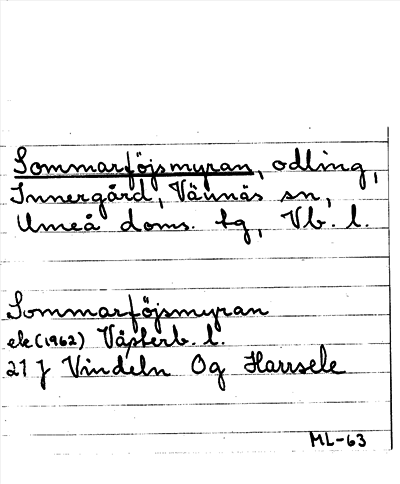 Sommarföjsmyran, odling,
Innergård, Vännäs sn,
Umeå doms. tg, Vb. l.
Sommarföjsmyran
ek (1962) Västerb. l.
21 J Vindeln Og Harrsele
ML-63